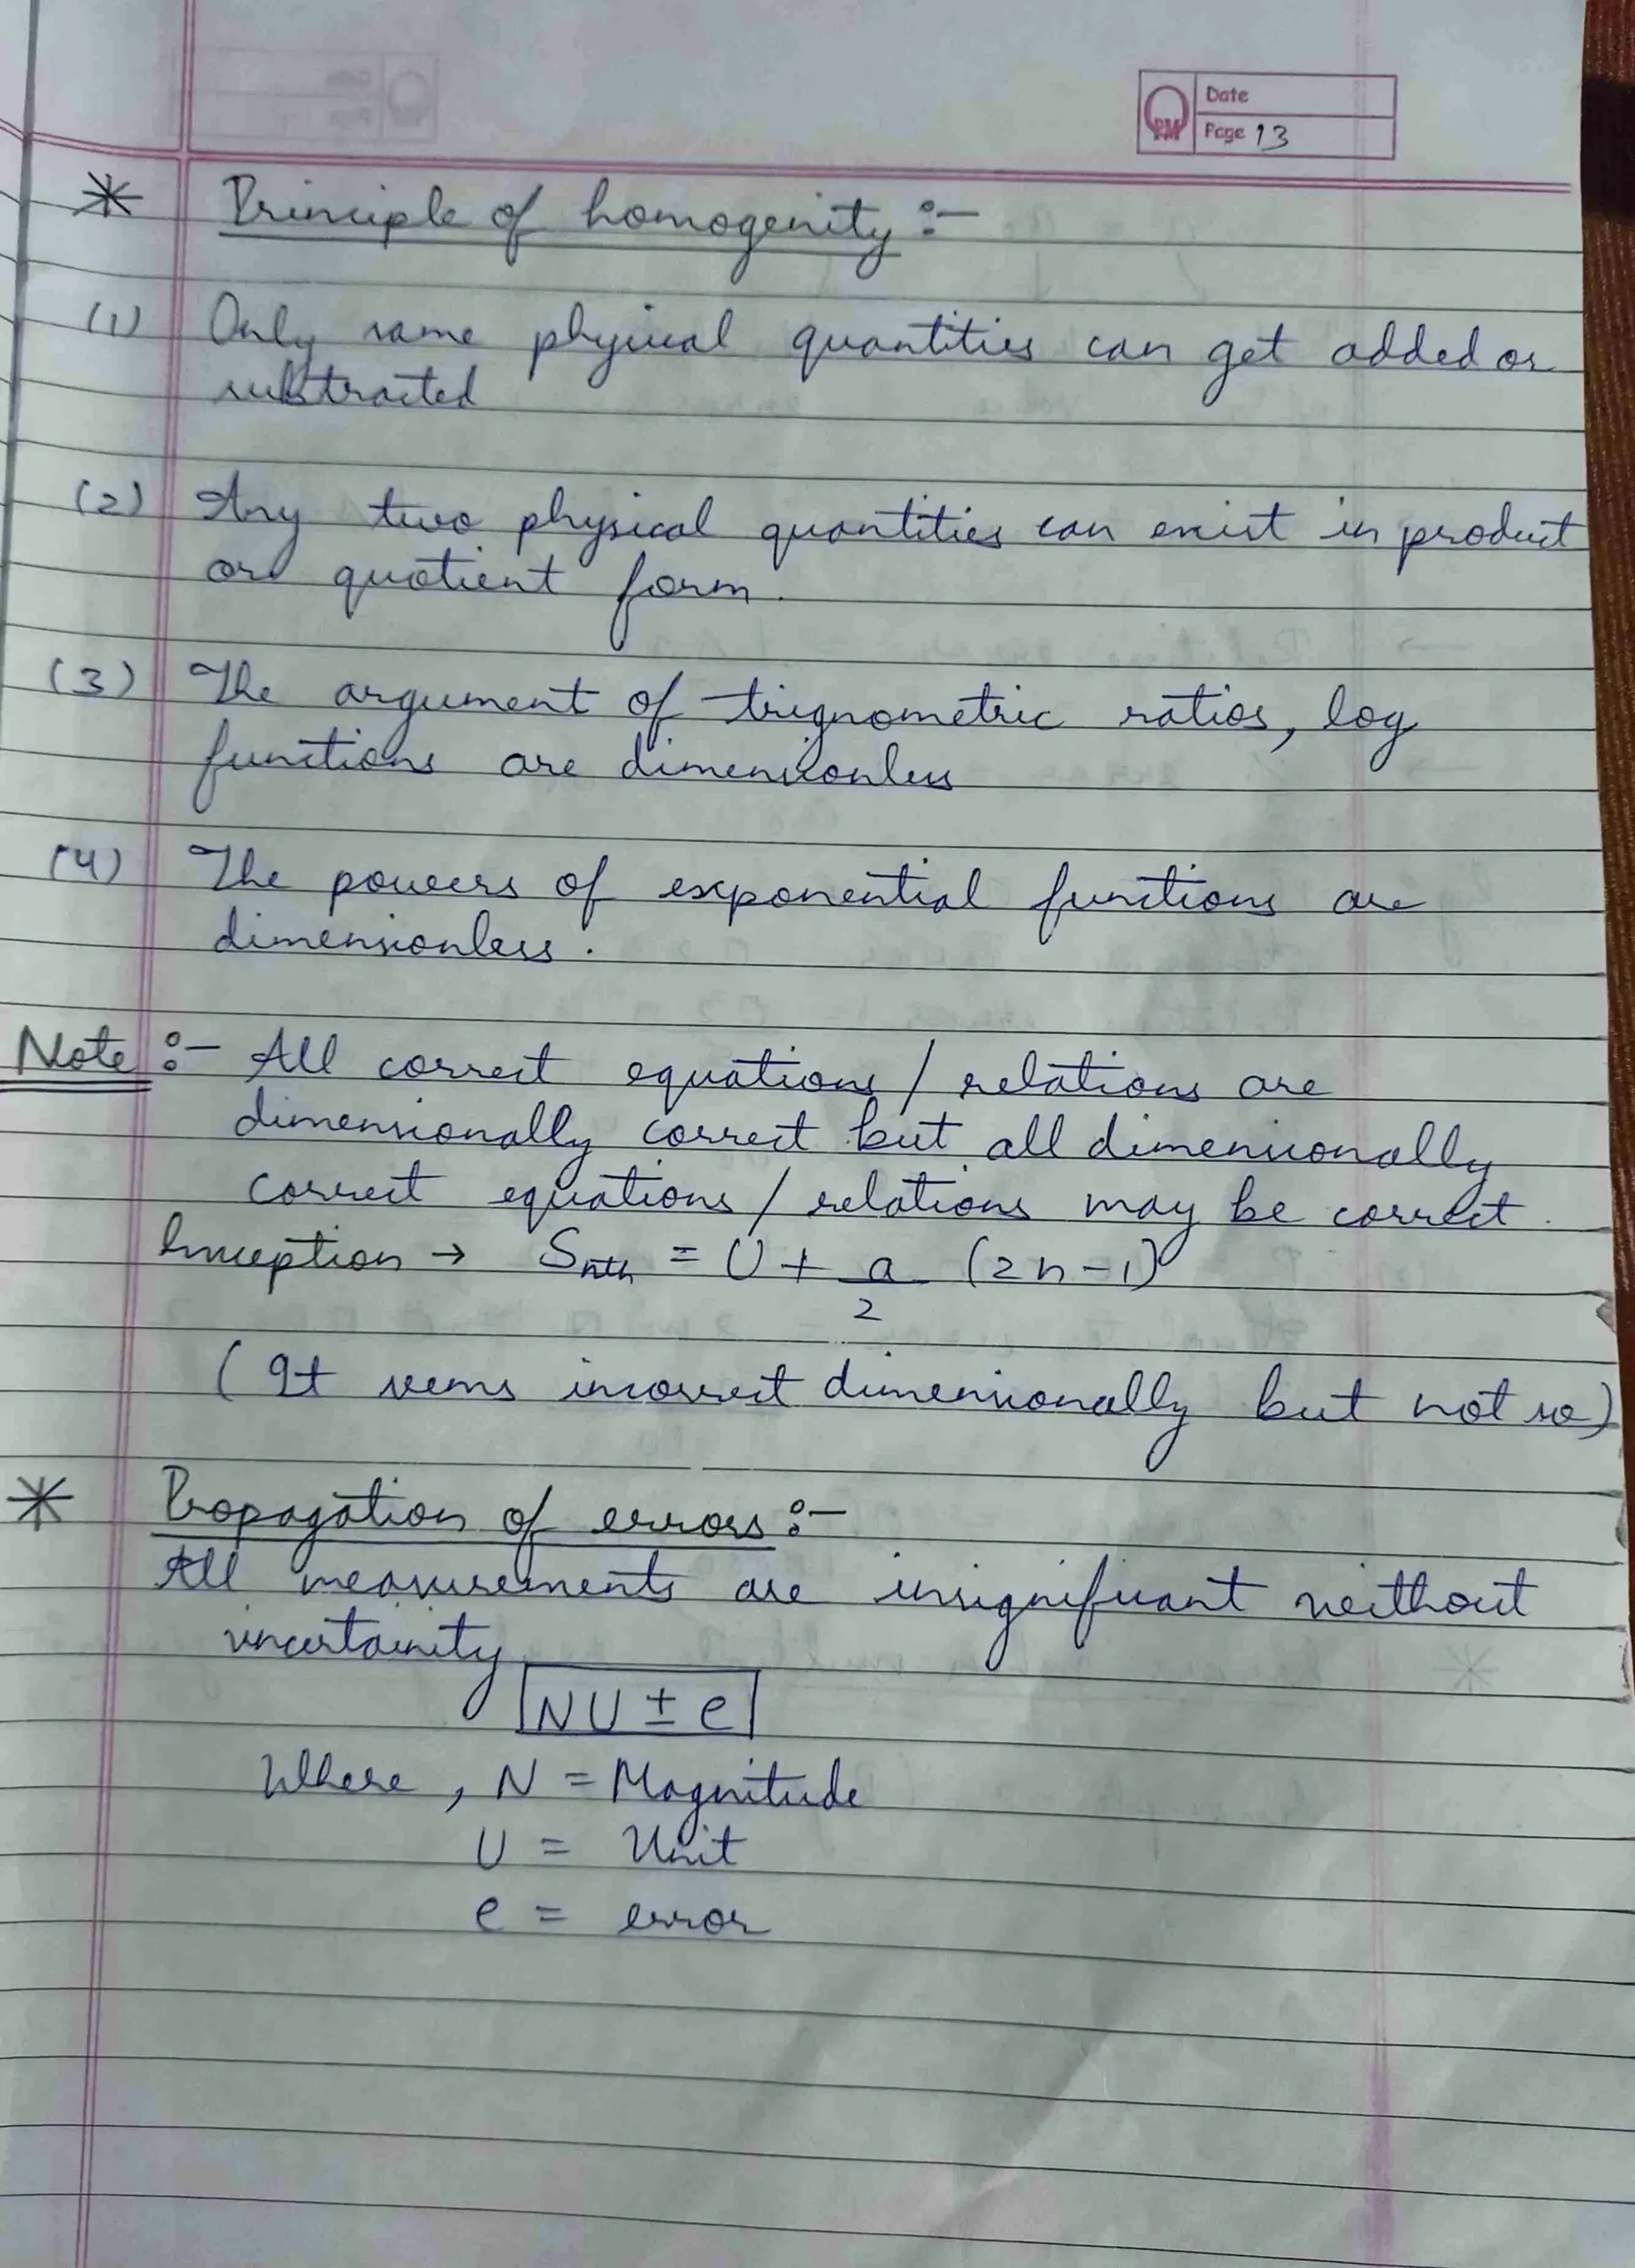 PM
Date
Page 13
* Principle of homogenity :-
(1) Only same physical quantities can get added or
subtracted
(2) Any two physical quantities can exist in product
or quotient form.
(3) The argument of trignometric ratios, log
functions are dimensionless
(4) The powers of exponential functions are
dimensionless.
Note :- All correct equations / relations are
dimensionally correct but all dimensionally
correct equations / relations may be correct.
→ Snth = U + a/2 (2n-1)
(It seems incorrect dimensionally but not so)
* Propagation of errors :-
All measurements are insignificant without
uncertainity
NU ± e
Where, N = Magnitude
U = Unit
e = error